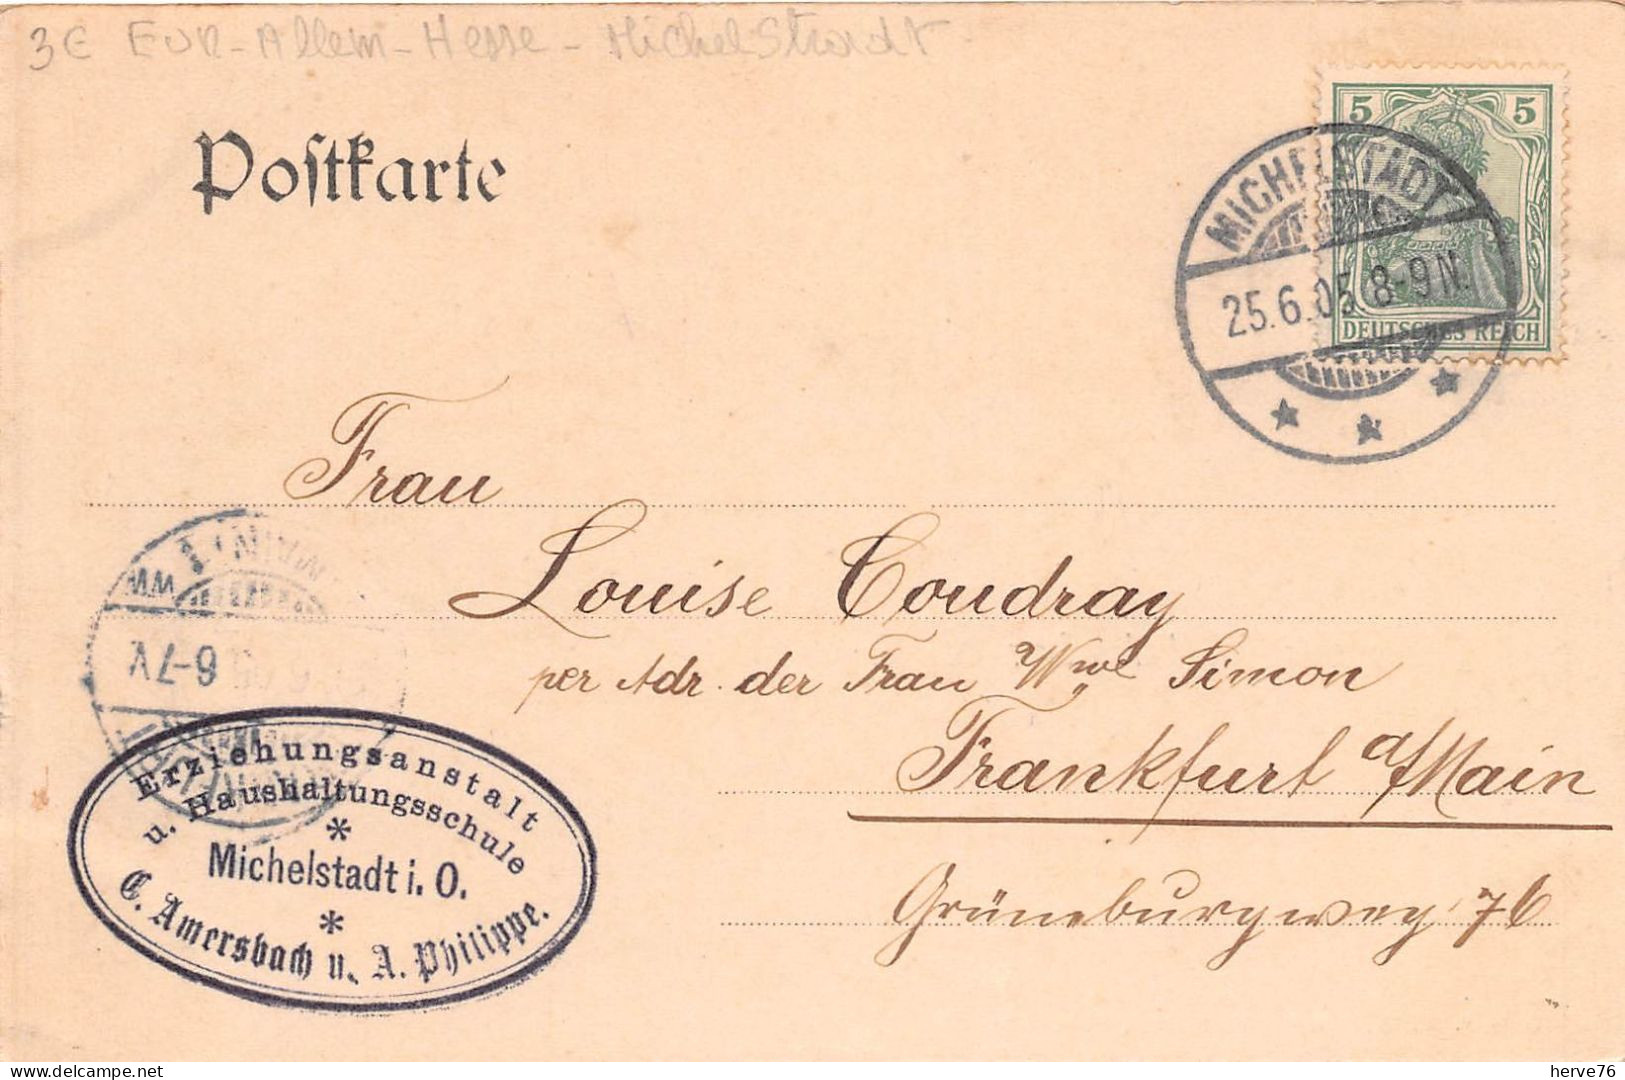 3€ EUR - Allem - Hesse - Michelstadt
Poſtkarte
5 5
DEUTSCHES REICH
MICHELSTADT
25.6.05 8-9N.
Frau
Louise Coudray
per Adr. der Frau Wwe Simon
Frankfurt a/Main
Grüneburgweg 76
6-7V
Erziehungsanstalt
u. Haushaltungsschule
*
Michelstadt i. O.
*
C. Amersbach u. A. Philippe.
delcampe.net
herve76